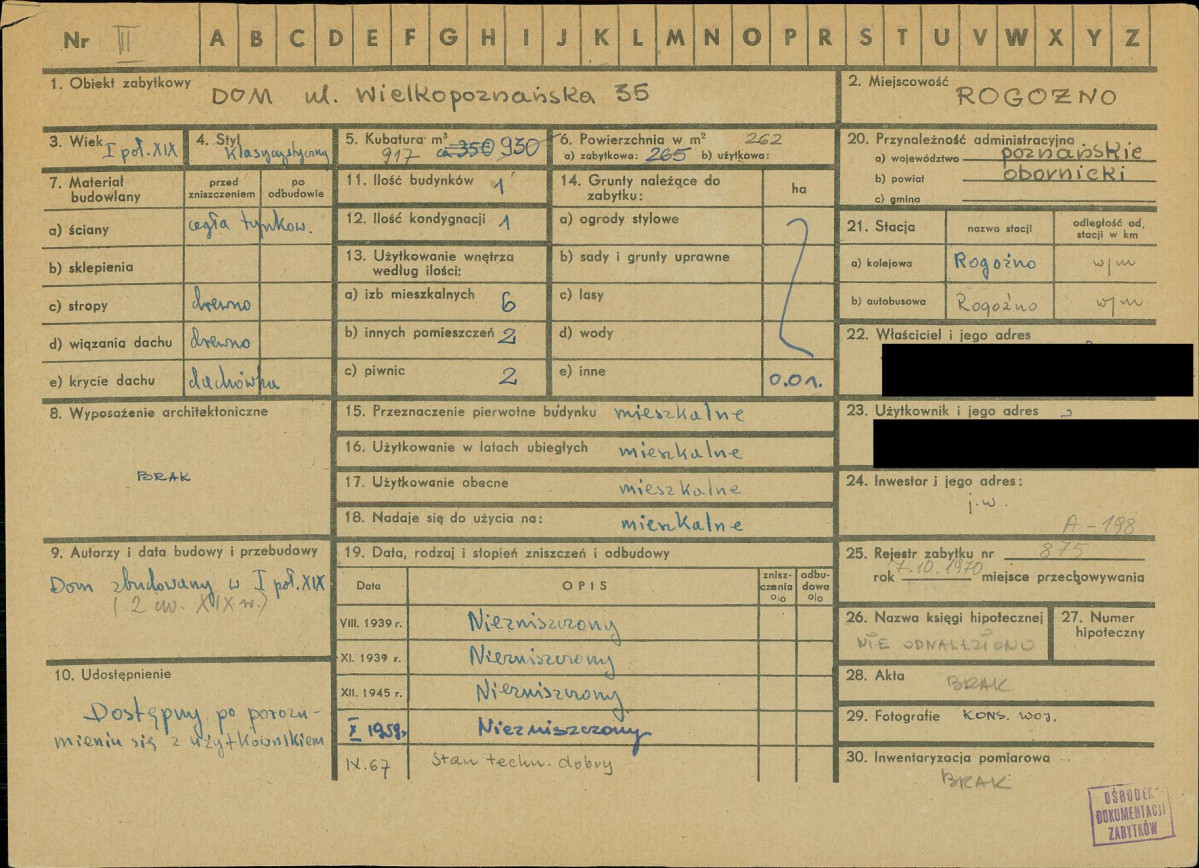 Nr III A B C D E F G H I J K L M N O P R S T U V W X Y Z
1. Obiekt zabytkowy DOM ul. Wielkopoznańska 35
2. Miejscowość
ROGOZNO
3. Wiek I poł. XIX
4. Styl klasycystyczny
5. Kubatura m³
917 ca 350 930
6. Powierzchnia w m² 262
a) zabytkowa: 265 b) użytkowa:
7. Materiał budowlany
przed zniszczeniem
po odbudowie
a) ściany cegła tynkow.
b) sklepienia
c) stropy drewno
d) wiązania dachu drewno
e) krycie dachu dachówka
8. Wyposażenie architektoniczne
BRAK
9. Autorzy i data budowy i przebudowy
Dom zbudowany w I poł. XIX
(2 ćw. XIX w.)
10. Udostępnienie
Dostępny po porozu-
mieniu się z użytkownikiem
11. Ilość budynków 1
12. Ilość kondygnacji 1
13. Użytkowanie wnętrza
według ilości:
a) izb mieszkalnych 6
b) innych pomieszczeń 2
c) piwnic 2
14. Grunty należące do
zabytku:
ha
a) ogrody stylowe
b) sady i grunty uprawne
c) lasy
d) wody
e) inne 0.01.
15. Przeznaczenie pierwotne budynku mieszkalne
16. Użytkowanie w latach ubiegłych mieszkalne
17. Użytkowanie obecne mieszkalne
18. Nadaje się do użycia na: mieszkalne
19. Data, rodzaj i stopień zniszczeń i odbudowy
Data OPIS
znisz-
czenia
%
odbu-
dowa
%
VIII. 1939 r. Niezniszczony
XI. 1939 r. Niezniszczony
XII. 1945 r. Niezniszczony
X 1959r. Niezniszczony
IX.67 Stan techn. dobry
20. Przynależność administracyjna
a) województwo poznańskie
b) powiat obornicki
c) gmina
21. Stacja
nazwa stacji
odległość od
stacji w km
a) kolejowa Rogoźno w/m
b) autobusowa Rogoźno w/m
22. Właściciel i jego adres
23. Użytkownik i jego adres
24. Inwestor i jego adres:
j.w.
A-198
25. Rejestr zabytku nr 875
rok 7.10.1970 miejsce przechowywania
26. Nazwa księgi hipotecznej
NIE ODNALEZIONO
27. Numer
hipoteczny
28. Akta
BRAK
29. Fotografie KONS. WOJ.
30. Inwentaryzacja pomiarowa
BRAK
OŚRODEK
DOKUMENTACJI
ZABYTKÓW